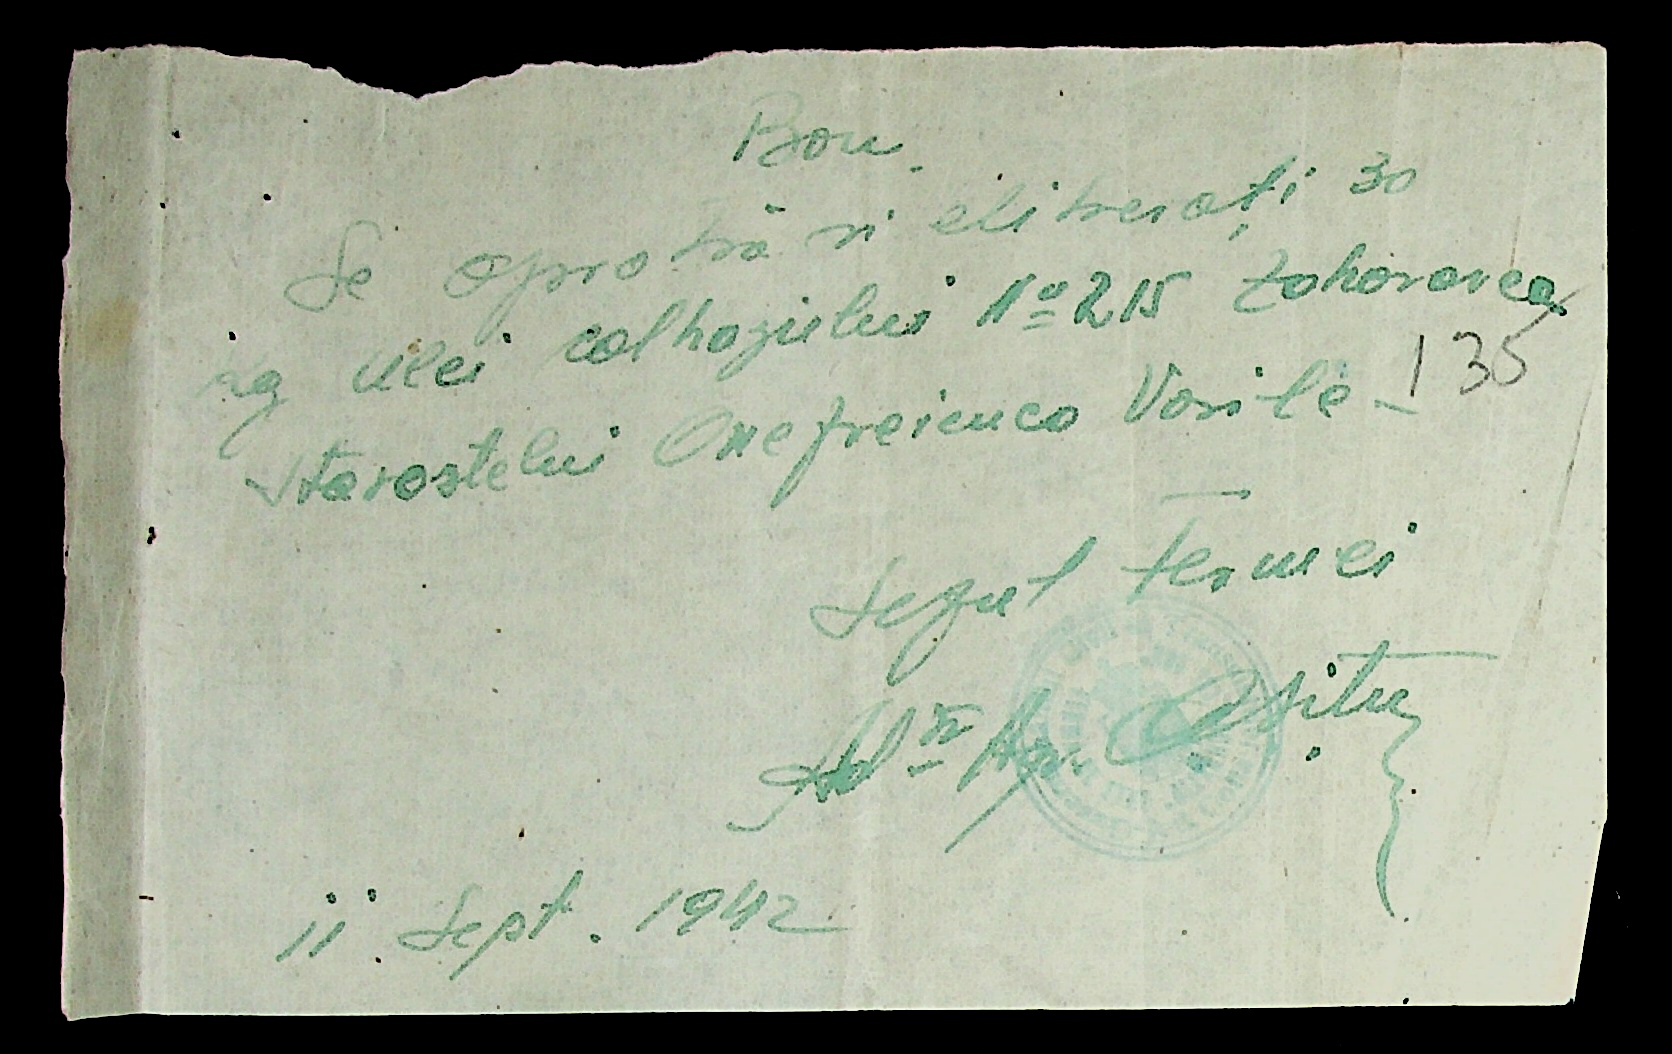 Bon.
Se aprobă și eliberați 30
kg ulei colhozului No 215 Zohorovca
starostelui Onefreienco Vasile –
135
Șeful fermei
11 Sept. 1942